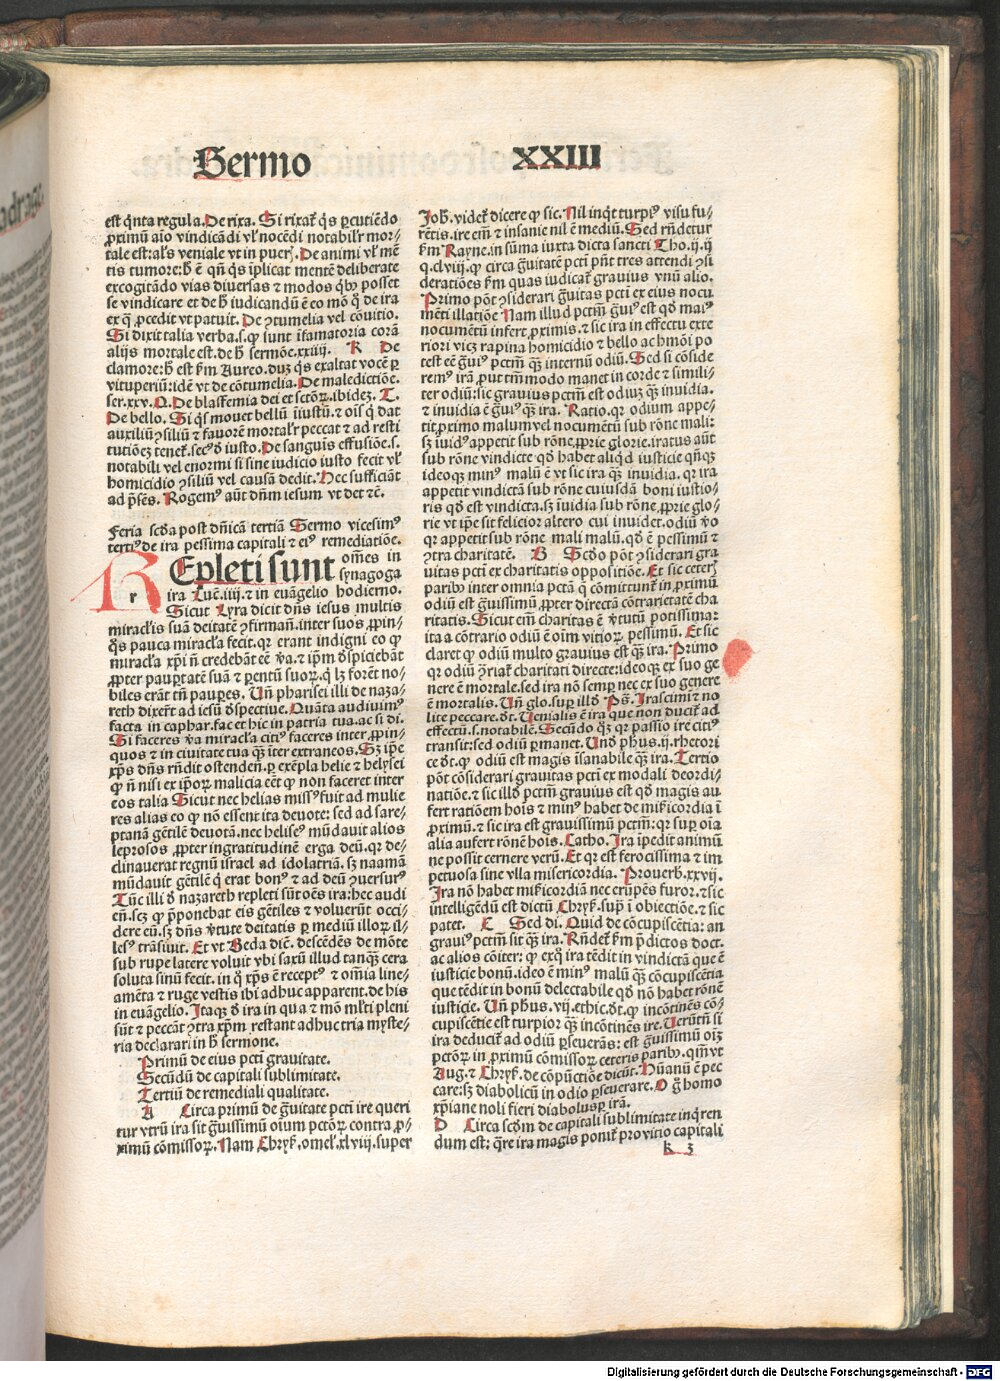 Sermo XXIII
est q̄nta regula. De rixa. Si rixat̄ q̄s ꝑcutiēdo
ꝓximū aīo vindicādi vl̓ nocēdi notabilr̓ mor-
tale est: al̓s veniale vt in pueri. De animi vl̓ mē
tis tumore: h̄ ē qn̄ q̄s īplicat mentē deliberate
excogitādo vias diuersas ⁊ modos q̄bꝰ posset
se vindicare et de h̄ iudicandū ē eo mō q̄ de ira
ex q̄ ꝓcedit vt patuit. De ꝯtumelia vel cōuitio.
Si dixit talia verba .s. ꝙ sunt īfamatoria corā
alijs mortale est. de h̄ sermōe .xxiiij. R De
clamore: h̄ est s̄m Aureo. duꝫ q̄s exaltat vocē ꝑ
vituperiū: idē vt de cōtumelia. De maledictiōe.
ser. xxv. Q. De blasfemia dei et sctōꝝ. ibideꝫ. T.
De bello. Si q̄s mouet bellū īiustū. ⁊ oīs q̄ dat
auxiliū ꝯsiliū ⁊ fauorē mortalr̓ peccat ⁊ ad resti
tutiōeꝫ tenet̄. secꝰ d̓ iusto. De sanguīs effusiōe. s.
notabili vel enormi si sine iudicio iusto fecit vl̓
homicidio ꝯsiliū vel causā dedit. Hec sufficiāt
ad p̄sēs. Rogemꝰ aūt dn̄m iesum vt det ⁊ē.
Feria scd̓a post dn̄icā tertiā Sermo vicesimꝰ
tertiꝰ de ira pessima capitali ⁊ eiꝰ remediatiōe.
REpleti sunt om̄es in
synagoga
ira Luc̄. iiij. ⁊ in euāgelio hodierno.
Sicut Lyra dicit dn̄s iesus multis
miracl̓is suā deitatē ꝯfirman̄. inter suos ꝓpin-
q̄s pauca miracl̓a fecit. qr erant indigni eo ꝙ
miracl̓a xp̄i n̄ credebāt eē v̓a. ⁊ ip̄m d̓spiciebāt
ꝓpter paupertatē suā ⁊ parentū suoꝝ. q̄ lꝫ forēt no-
biles erāt tn̄ pauꝑes. Un̄ pharisei illi de naza-
reth dixerūt ad iesū d̓spectiue. Quāta audiuimꝰ
facta in caphar. fac et hic in patria tua. ac si di.
Si faceres v̓a miracl̓a citiꝰ faceres inter ꝓpin-
quos ⁊ in ciuitate tua q̄ꝫ īter extraneos. Sꝫ ip̄e
xp̄s dn̄s rn̄dit ostenden̄. ꝑ exēpla helie ⁊ helysei
ꝙ n̄ nisi ex ip̄oꝝ malicia eēt ꝙ non faceret inter
eos talia Sicut nec helias missꝰ fuit ad mulie
res alias eo ꝙ nō essent ita deuote: sed ad sare-
ptanā gētilē deuotā. nec heliseꝰ mūdauit alios
leprosos ꝓpter ingratitudinē erga deū. qr de-
clinauerat regnū israel ad idolatriā. sꝫ naamā
mūdauit gētilē q̄ erat bonꝰ ⁊ ad deū ꝯuersurꝰ
Tūc illi d̓ nazareth repleti sūt oēs ira: hec audi
en̄. scꝫ ꝙ p̄ponebat eis gētiles ⁊ voluerūt occi-
dere eū. sꝫ dn̄s v̓tute deitatis ꝑ mediū illoꝝ il-
lesꝰ trāsiuit. Et vt Beda dic̄. descēdēs de mōte
sub rupe latere voluit vbi saxū illud tanq̄ꝫ cera
soluta sinū fecit. in q̄ xp̄s ē receptꝰ ⁊ om̄ia line-
amēta ⁊ ruge vestis ibi adhuc apparent. de his
in euāgelio. Itaqꝫ d̓ ira in qua ⁊ mō ml̓ti pleni
sūt ⁊ peccāt ꝯtra xp̄m. restant adhuc tria myste-
ria declarari in h̄ sermone.
Primū de eius pctī grauitate.
Secūdū de capitali sublimitate.
Tertiū de remediali qualitate.
A Circa primū de g̓uitate pctī ire queri
tur vtrū ira sit g̓uissimū oīum pctōꝝ contra ꝓ-
ximū cōmissoꝝ. Nam Chryß. omel̓. xlviij. super
Joh̄. videt̄ dicere ꝙ sic. Nil inq̄t turpiꝰ visu fu-
rētis. ire em̄ ⁊ insanie nil ē mediū. Sed rn̄detur
s̄m Rayne. in sūma iuxta dicta sancti Tho. ij. ij
q. clviij. ꝙ circa g̓uitatē pctī pn̄t tres attendi ꝯsi
derationes s̄m quas iudicat̄ grauius vnū alio.
Primo pōt ꝯsiderari g̓uitas pctī ex eius nocu
mēti illatiōe Nam illud pctm̄ g̓uiꝰ est qd̓ maiꝰ
nocumētū infert ꝓximis. ⁊ sic ira in effectu exte
riori vicꝫ rapina homicidio ⁊ bello ac hmōi po
test eē g̓uiꝰ pctm̄ q̄ꝫ internū odiū. Sed si cōside
remꝰ irā ꝓut tm̄modo manet in corde ⁊ simili-
ter odiū: sic grauius pctm̄ est odiuꝫ q̄ꝫ inuidia.
⁊ inuidia ē g̓uiꝰ q̄ꝫ ira. Ratio. qr odium appe-
tit ꝓximo malum vel nocumētū sub rōne mali:
sꝫ iuidꝰ appetit sub rōne ꝓprie glorie. iratus aūt
sub rōne vindicte qd̓ habet aliq̄d iusticie qn̄qꝫ
ideoqꝫ minꝰ malū ē vt sic ira q̄ꝫ inuidia. qr ira
appetit vindictā sub rōne cuiusdā boni iustio-
ris qd̓ est vindicta. sꝫ īuidia sub rōne ꝓprie glo-
rie vt ip̄e sit felicior altero cui inuidet. odiū v̓o
qr appetit sub rōne mali malū. qd̓ ē pessimū ⁊
ꝯtra charitatē. B Scd̓o pōt ꝯsiderari gra
uitas pctī ex charitatis oppositiōe. Et sic ceterꝫ
paribꝰ inter omnia pctā q̄ cōmittunt̄ in ꝓximū
odiū est g̓uissimū ꝓpter directā cōtrarietatē cha
ritatis. Sicut em̄ charitas ē v̓tutū potissima:
ita a cōtrario odiū ē oīm vitioꝝ pessimū. Et sic
claret ꝙ odiū multo grauius est q̄ꝫ ira. Primo
qr odiū ꝯriat̄ charitati directe: ideoqꝫ ex suo ge
nere ē mortale. sed ira nō semꝑ nec ex suo genere
ē mortalis. Un̄ glo. suꝑ illd̓ Ps̄. Irascimi ⁊ no
lite peccare. d̓t. Uenialis ē ira que non ducit̄ ad
effectū. s. notabile. Secūdo qꝫ qr passio ire citiꝰ
transit: sed odiū ꝑmanet. Und̓ phus. ij. rhetori
ce d̓t. ꝙ odiū est magis īsanabile q̄ꝫ ira. Tertio
pōt cōsiderari grauitas pctī ex modali deordi-
natiōe. ⁊ sic illd̓ pctm̄ grauius est qd̓ magis au
fert ratiōem hoīs ⁊ minꝰ habet de mīẜicordia ī
ꝓximū. ⁊ sic ira est grauissimū pctm̄: qr suꝑ oīa
alia aufert rōnē hoīs. Catho. Ira īpedit animū
ne possit cernere verū. Et qr est ferocissima ⁊ im
petuosa sine vlla misericordia. Prouerb̓. xxvij.
Ira nō habet mīẜicordiā nec erūpēs furor. ⁊ sic
intelligēdū est dictū Chryß. suꝑ ī obiectiōe. ⁊ sic
patet. C Sed di. Quid de cōcupiscētia: an
grauiꝰ pctm̄ sit q̄ꝫ ira. Rn̄det̄ s̄m p̄dictos doct.
ac alios cōiter: ꝙ exq̄ ira tēdit in vindictā que ē
iusticie bonū. ideo ē minꝰ malū q̄ꝫ cōcupiscētia
que tēdit in bonū delectabile qd̓ nō habet rōnē
iusticie. Un̄ phus. vij. ethic. d̓t. ꝙ incōtinēs cō-
cupiscētie est turpior q̄ꝫ incōtinēs ire. Uerūtn̄ si
ira deducit̄ ad odiū ꝑseuerās: est g̓uissimū oīꝫ
pctōꝝ in ꝓximū cōmissoꝝ ceteris paribꝰ. qm̄ vt
Aug. ⁊ Chryß. de cōpūctiōe dicūt. Hūanū ē pec
care: sꝫ diabolicū in odio ꝑseuerare. O g̓ homo
xp̄iane noli fieri diabolus ꝑ irā.
D Circa scd̓m de capitali sublimitate inq̄ren
dum est: q̄re ira magis ponit̄ pro vitio capitali
k 3
Digitalisierung gefördert durch die Deutsche Forschungsgemeinschaft - DFG